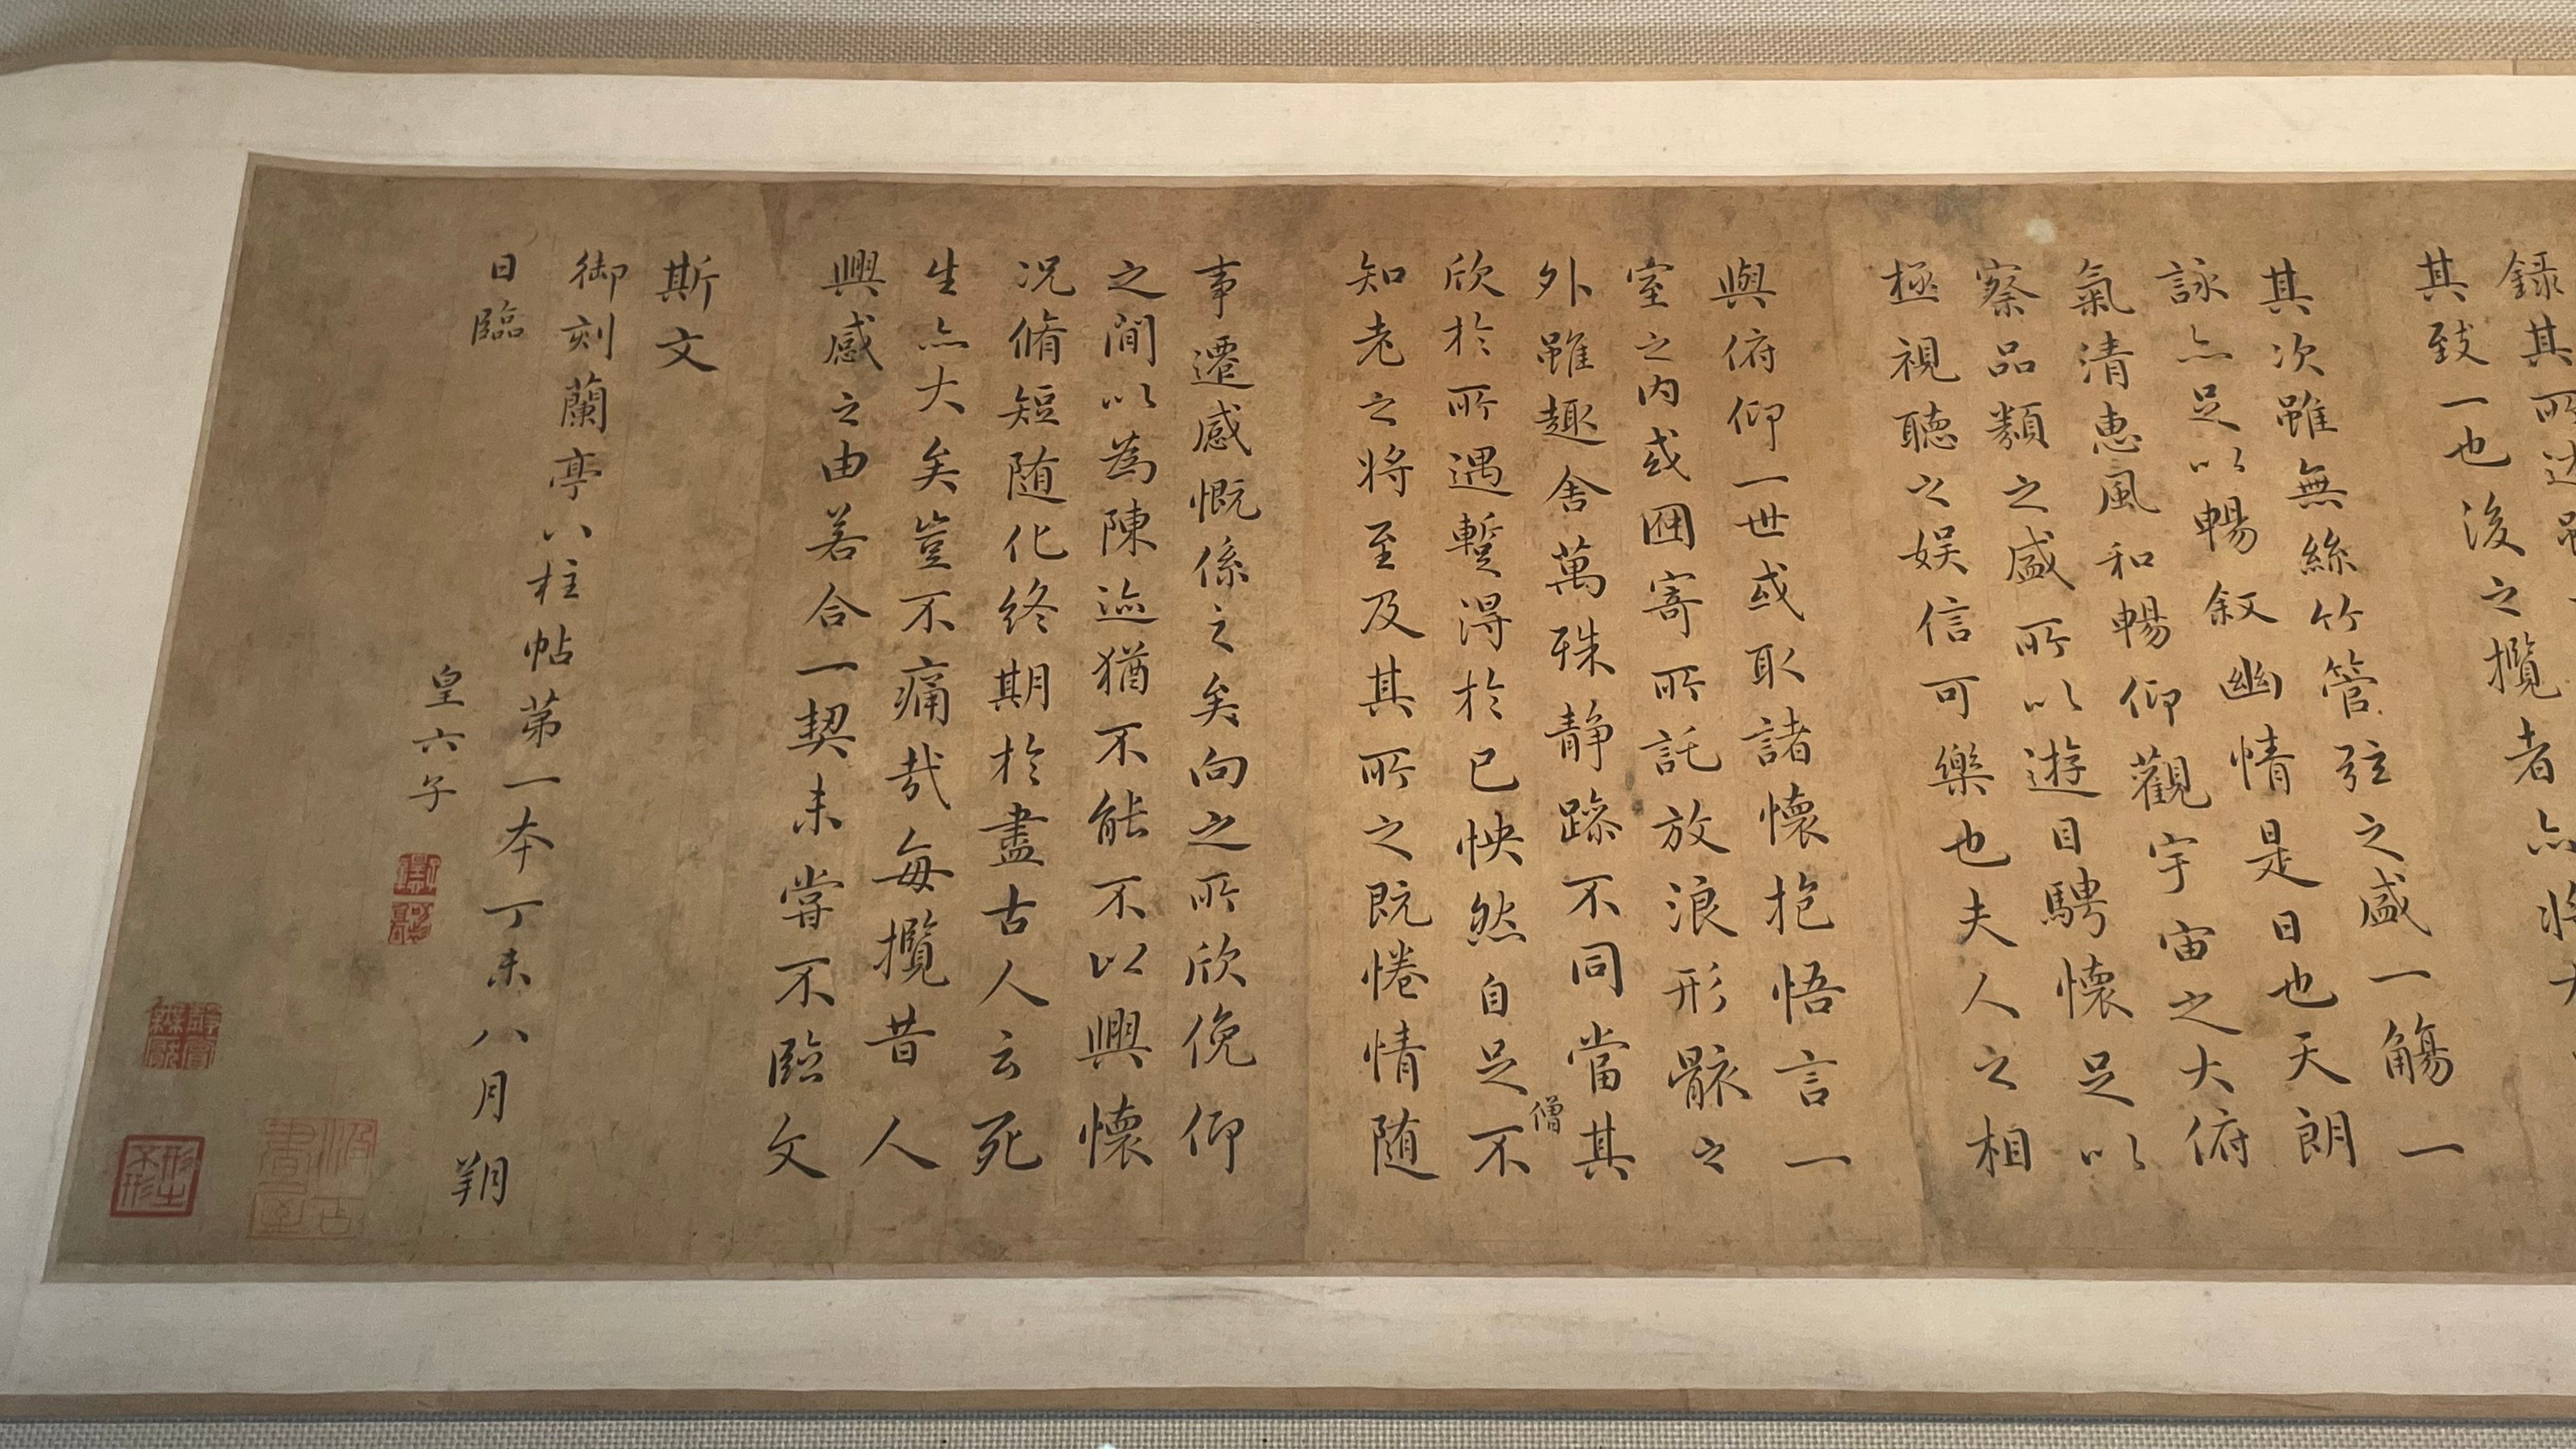 錄其所述雖
其致一也後之攬者亦将
其次雖無絲竹管弦之盛一觴一
詠亦足以暢叙幽情是日也天朗
氣清惠風和暢仰觀宇宙之大俯
察品類之盛所以遊目騁懷足以
極視聽之娱信可樂也夫人之相
與俯仰一世或取諸懷抱悟言一
室之内或因寄所託放浪形骸之
外雖趣舍萬殊静躁不同當其
僧
欣於所遇蹔得於己怏然自足不
知老之将至及其所之既惓情随
事遷感慨係之矣向之所欣俛仰
之閒以為陳迹猶不能不以興懷
况脩短随化終期於盡古人云死
生亦大矣豈不痛哉每攬昔人
興感之由若合一契未嘗不臨文
斯文
御刻蘭亭八柱帖第一本丁未八月朔
日臨
皇六子